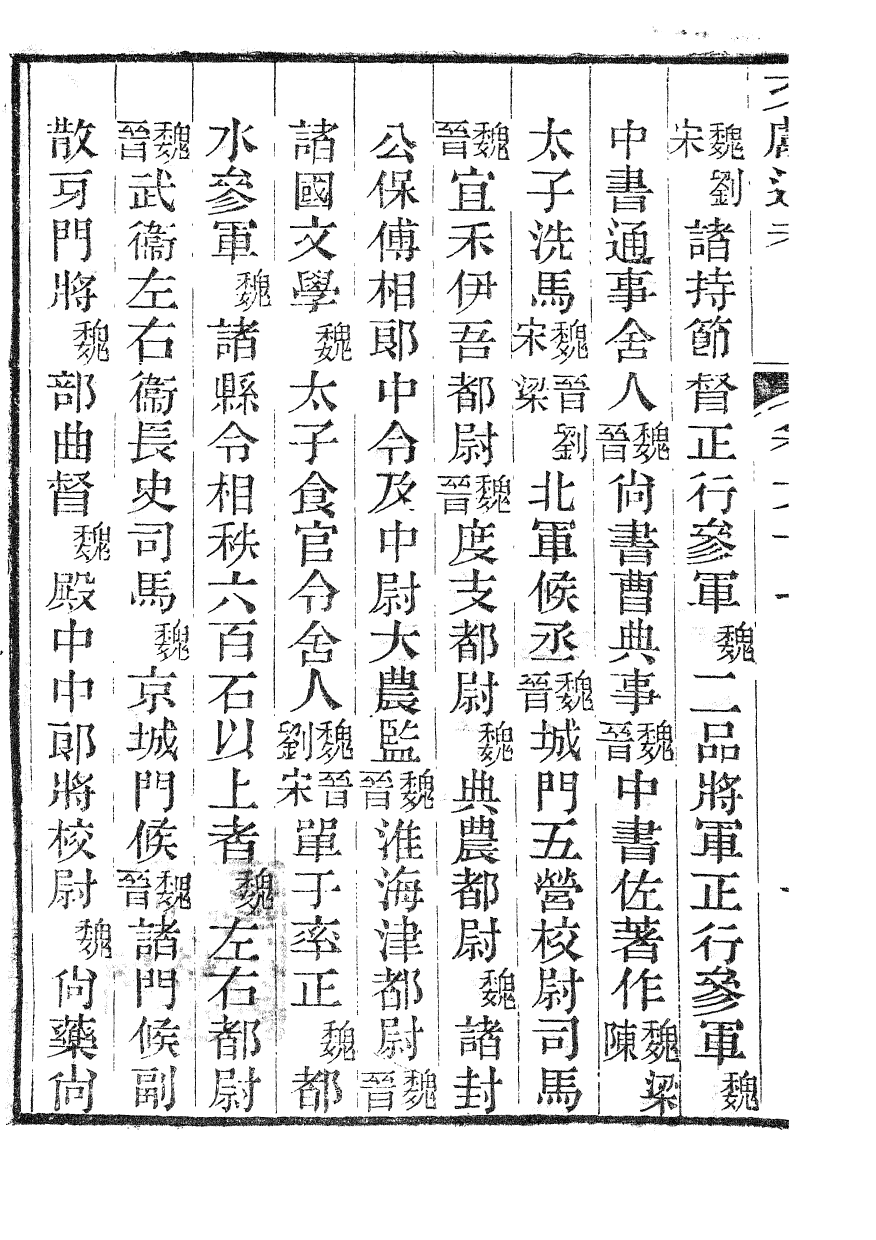 魏劉宋諸持節督正行參軍魏二品將軍正行參軍魏
中書通事舍人魏晉尙書曹典事魏晉中書佐著作魏梁陳
太子洗馬魏晉劉宋梁北軍候丞魏晉城門五營校尉司馬
魏晉宜禾伊吾都尉魏晉度支都尉魏典農都尉魏諸封
公保傅相郎中令及中尉大農監魏晉淮海津都尉魏晉
諸國文學魏太子食官令舍人魏晉劉宋單于率正魏都
水參軍魏諸縣令相秩六百石以上者魏左右都尉
魏晉武衞左右衞長史司馬魏京城門候魏晉諸門候副
散牙門將魏部曲督魏殿中中郎將校尉魏尙藥尙